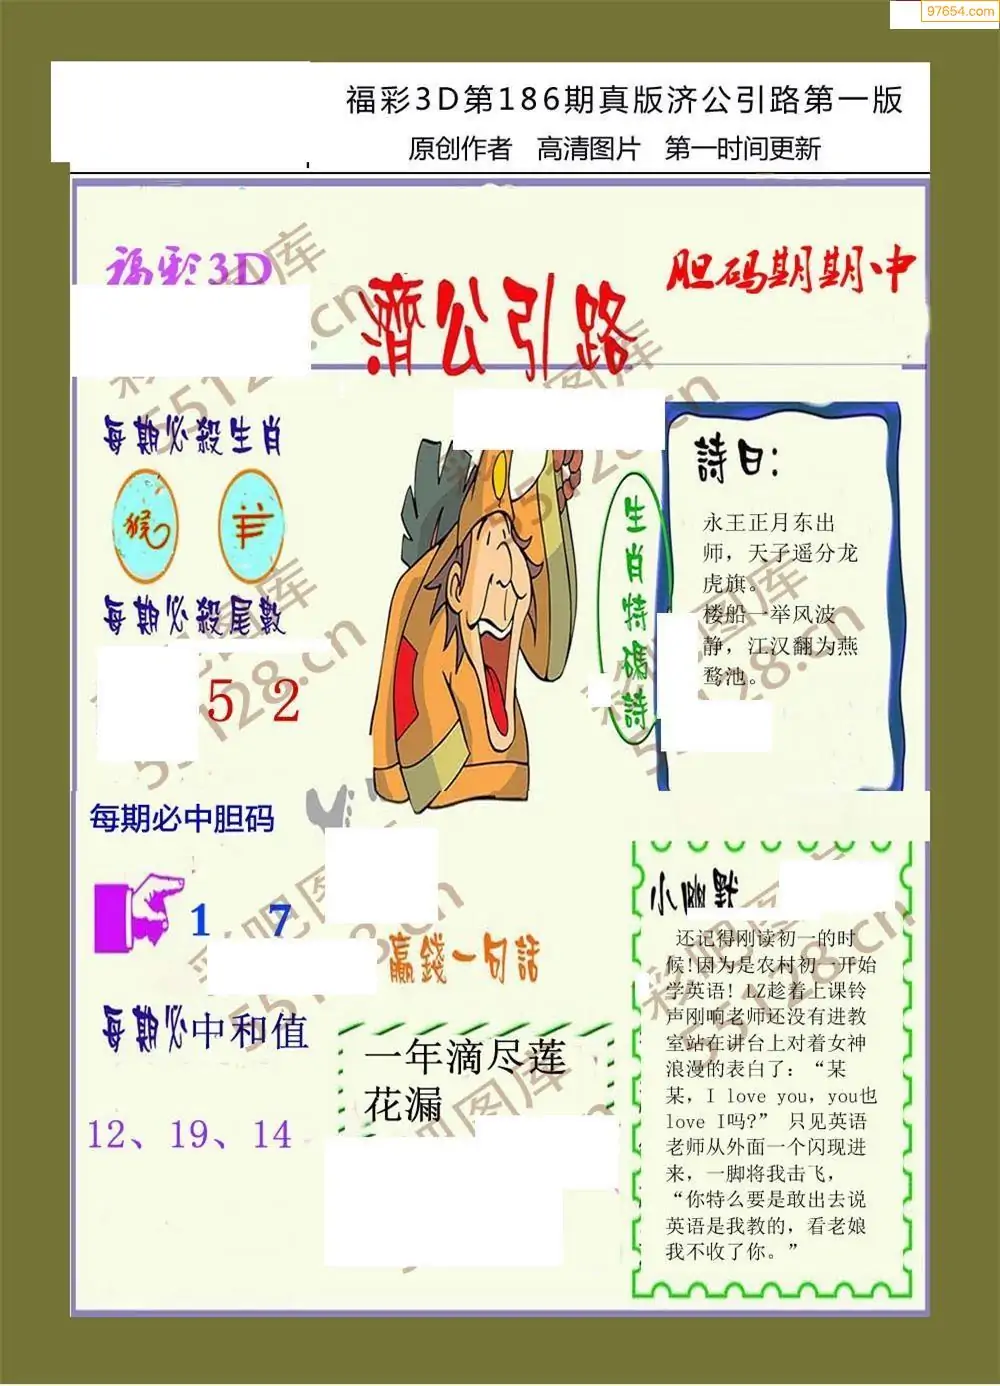 97654.com
福彩3D第186期真版济公引路第一版
原创作者 高清图片 第一时间更新
福彩3D
胆码期期中
濟公引路
每期必殺生肖
猴 羊
每期必殺尾數
5 2
生肖特碼詩
詩曰:
永王正月东出
师，天子遥分龙
虎旗。
楼船一举风波
静，江汉翻为燕
鹜池。
每期必中胆码
1 7
每期必中和值
12、19、14
赢錢一句話
一年滴尽莲
花漏
小幽默
还记得刚读初一的时
候!因为是农村初一开始
学英语! LZ趁着上课铃
声刚响老师还没有进教
室站在讲台上对着女神
浪漫的表白了: “某
某, I love you, you也
love I吗?” 只见英语
老师从外面一个闪现进
来，一脚将我击飞，
“你特么要是敢出去说
英语是我教的，看老娘
我不收了你。”
彩吧图库
55128.cn